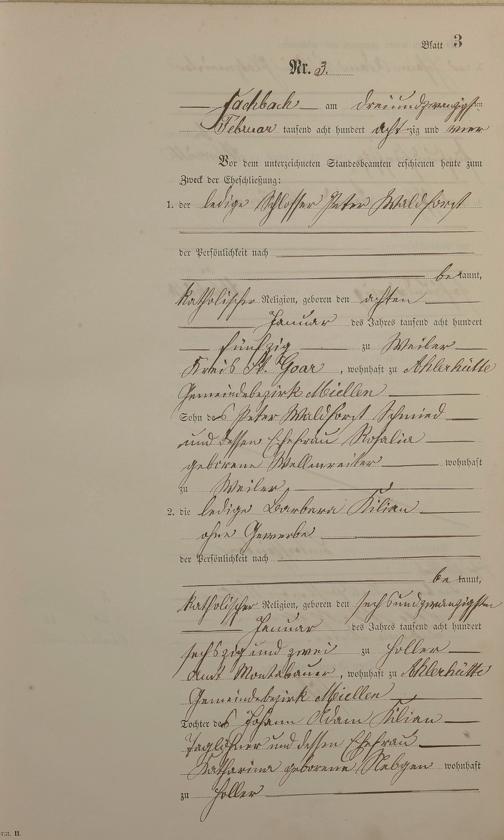 Blatt 3
Nr. 3.
Fachbach am dreiundzwanzigsten
Februar tausend acht hundert achtzig und vier
Vor dem unterzeichneten Standesbeamten erschienen heute zum
Zweck der Eheschließung:
1. der ledige Schlosser Peter Waldforst
der Persönlichkeit nach
bekannt,
katholischer Religion, geboren den achten
Januar des Jahres tausend acht hundert
fünfzig zu Weiler
Kreis St. Goar, wohnhaft zu Ahlerhütte
Gemeindebezirk Miellen
Sohn des Peter Waldforst Schmied
und dessen Ehefrau Rosalia
geborene Wellenreiter wohnhaft
zu Weiler
2. die ledige Barbara Kilian
ohne Gewerbe
der Persönlichkeit nach
bekannt,
katholischer Religion, geboren den sechsundzwanzigsten
Januar des Jahres tausend acht hundert
sechszig und zwei zu Holler
Amt Montabauer, wohnhaft zu Ahlerhütte
Gemeindebezirk Miellen
Tochter des Johann Adam Kilian
Taglöhner und dessen Ehefrau
Katharina geborene Nebgen wohnhaft
zu Holler